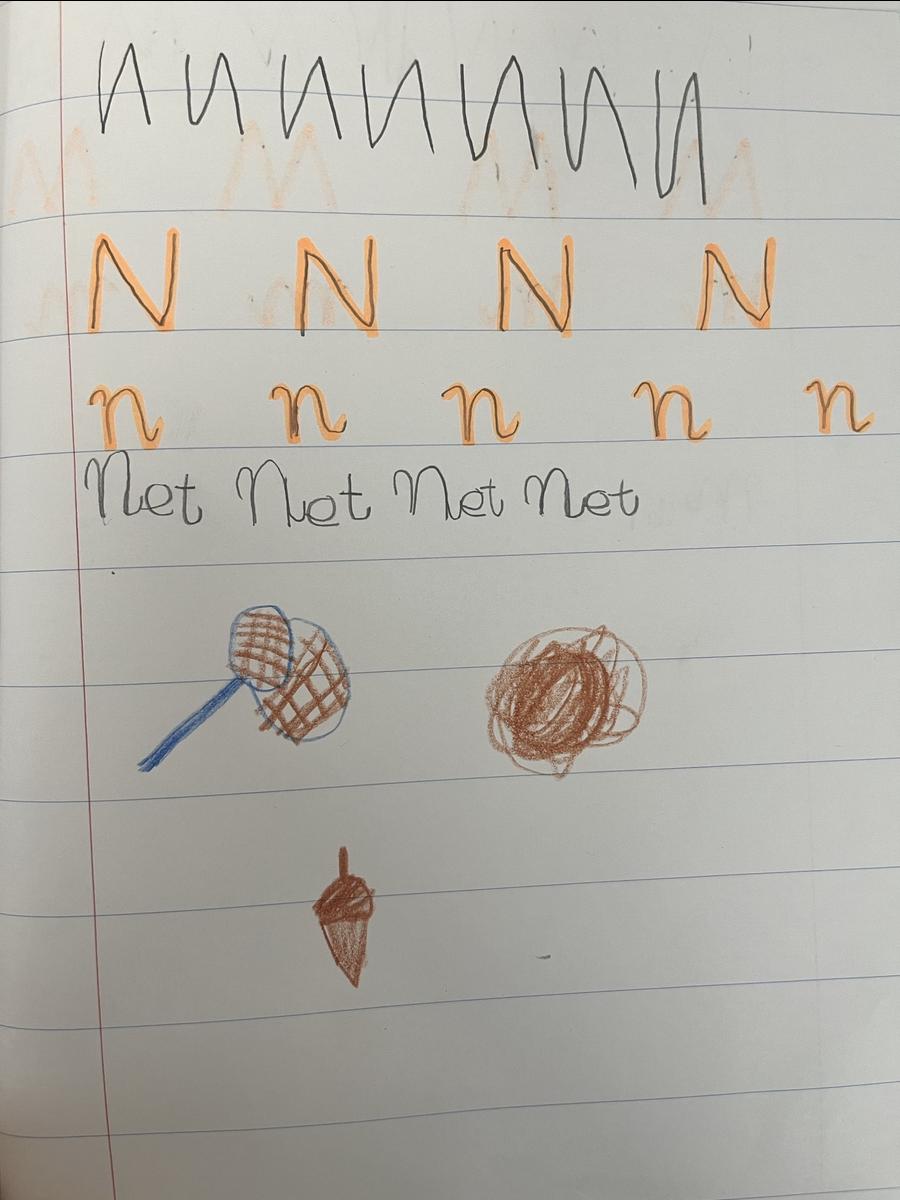 N N N N N N N
N N N N
n n n n n
Net Net Net Net